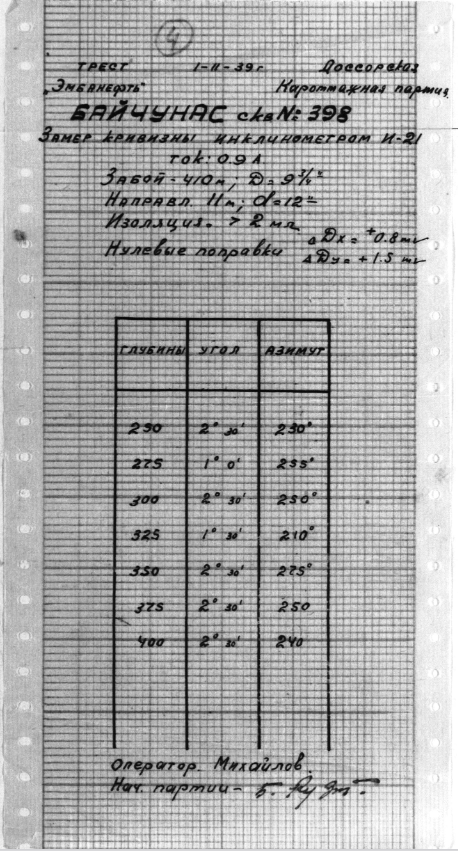 4
ТРЕСТ 1-II-39г Доссорская
„Эмбанефть" Кароттажная партия
БАЙЧУНАС скв № 398
Замер кривизны инклинометром И-21
ток: 0.9 А
Забой - 410 м; D = 9 3/4"
Направл. 11 м; d = 12"
Изоляция. > 2 мΩ
Нулевые поправки Δ Dx = +0.8 mv
Δ Dy = +1.5 mv
ГЛУБИНЫ УГОЛ АЗИМУТ
250 2° 30' 230°
275 1° 0' 255°
300 2° 30' 250°
325 1° 30' 210°
350 2° 30' 275°
375 2° 30' 250
400 2° 30' 240
Оператор. Михайлов.
Нач. партии -